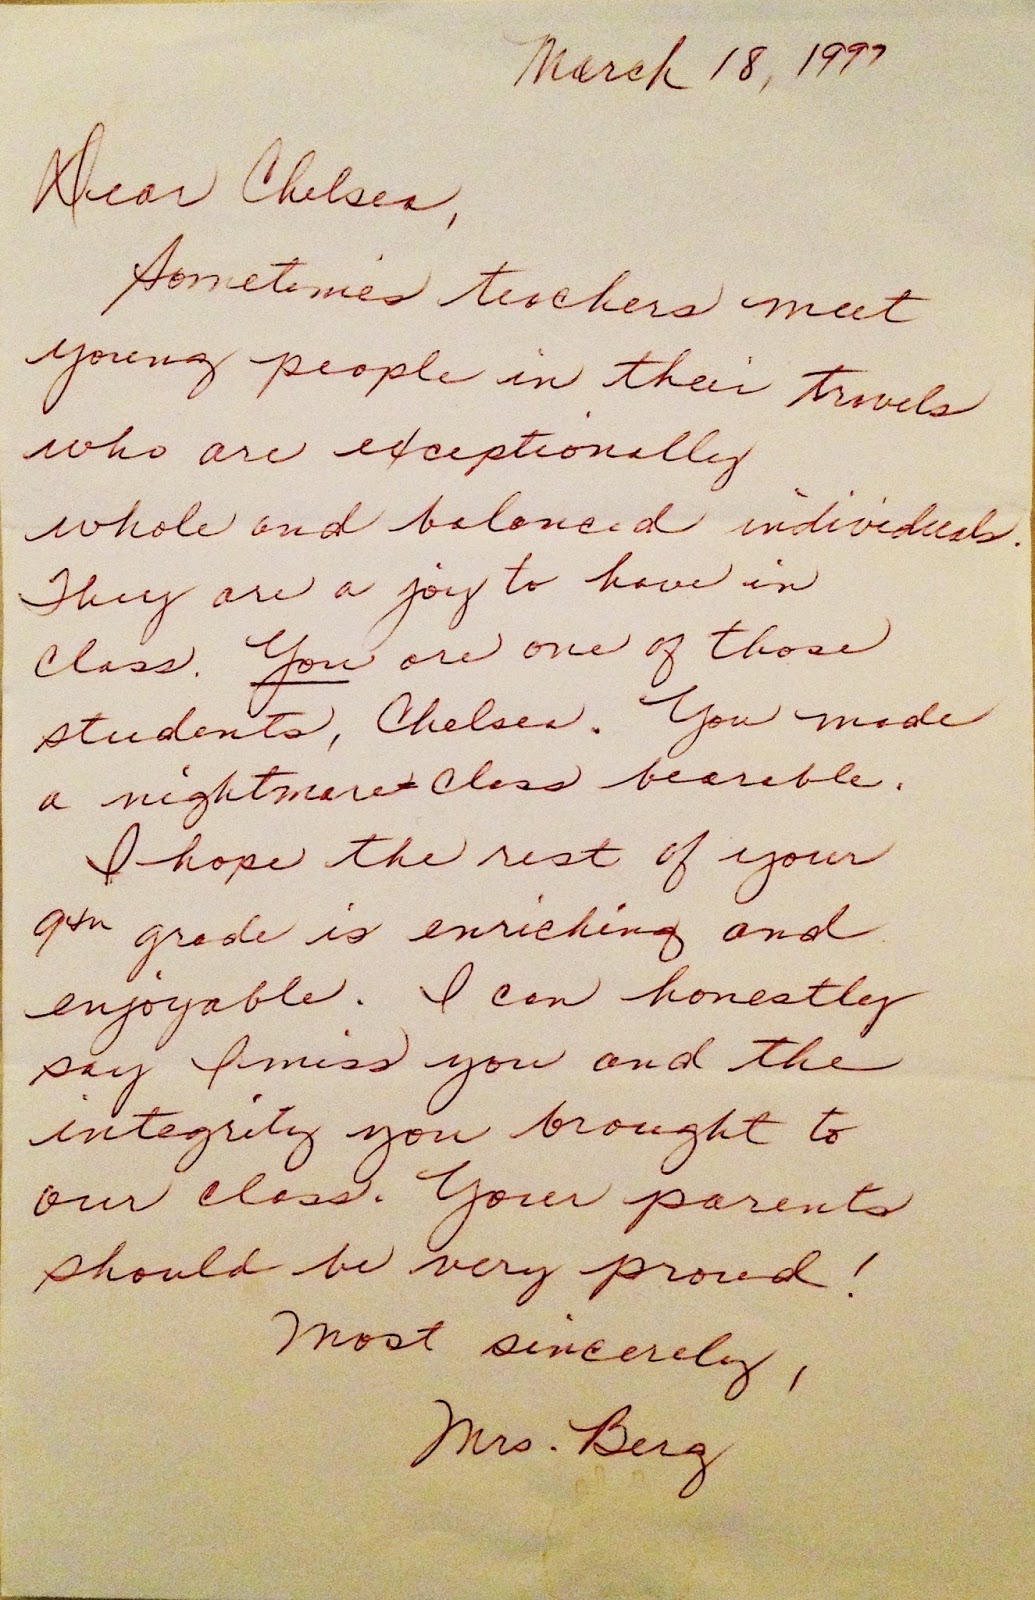 March 18, 1997
Dear Chelsea,
Sometimes teachers meet
young people in their travels
who are exceptionally
whole and balanced individuals.
They are a joy to have in
class. You are one of those
students, Chelsea. You made
a nightmare class bearable.
I hope the rest of your
9th grade is enriching and
enjoyable. I can honestly
say I miss you and the
integrity you brought to
our class. Your parents
should be very proud!
Most sincerely,
Mrs. Berg